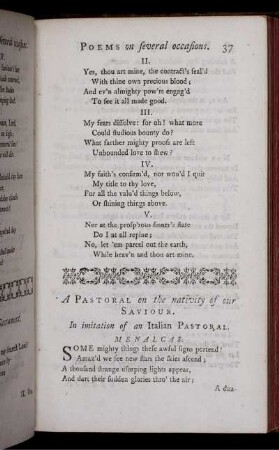 POEMS on several occasions. 37
II.
Yes, thou art mine, the contract's seal'd
With thine own precious blood;
And ev'n almighty pow'rs engag'd
To see it all made good.
III.
My fears dissolve: for oh! what more
Could studious bounty do?
What farther mighty proofs are left
Unbounded love to shew?
IV.
My faith's confirm'd, nor wou'd I quit
My title to thy love,
For all the valu'd things below,
Or shining things above.
V.
Nor at the prosp'rous sinner's state
Do I at all repine;
No, let 'em parcel out the earth,
While heav'n and thou art mine.
A PASTORAL on the nativity of our
SAVIOUR.
In imitation of an Italian PASTORAL.
MENALCAS.
SOME mighty things these awful signs portend!
Amaz'd we see new stars the skies ascend;
A thousand strange usurping lights appear,
And dart their sudden glories thro' the air;
A